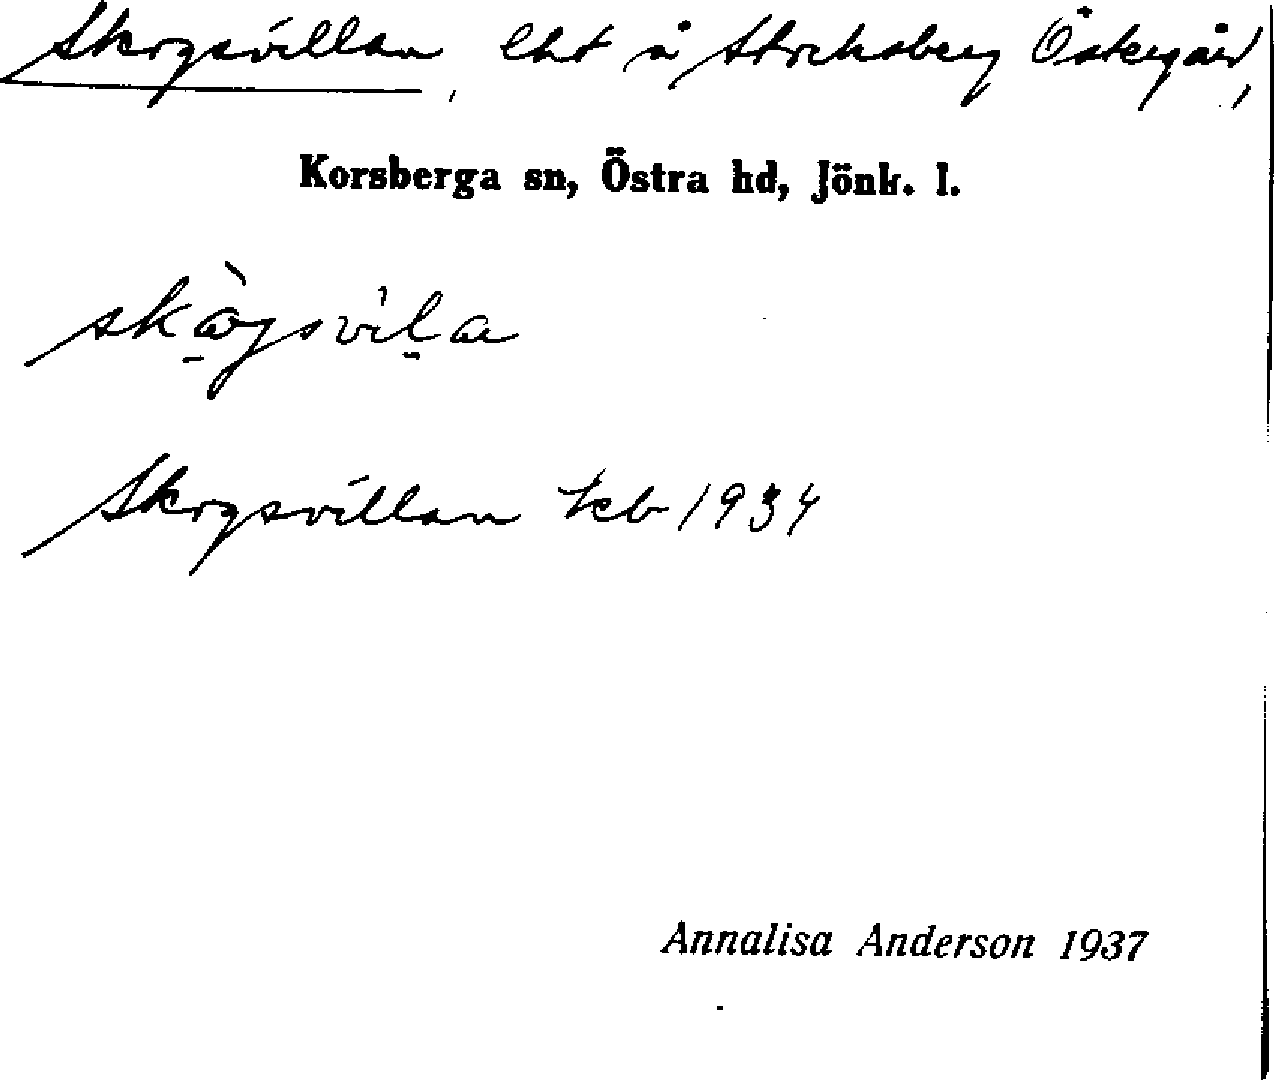 Skogsvillan, lht å Stocksberg Östergård,
Korsberga sn, Östra hd, Jönk. l.
skògsvila
Skogsvillan teb 1934
Annalisa Anderson 1937